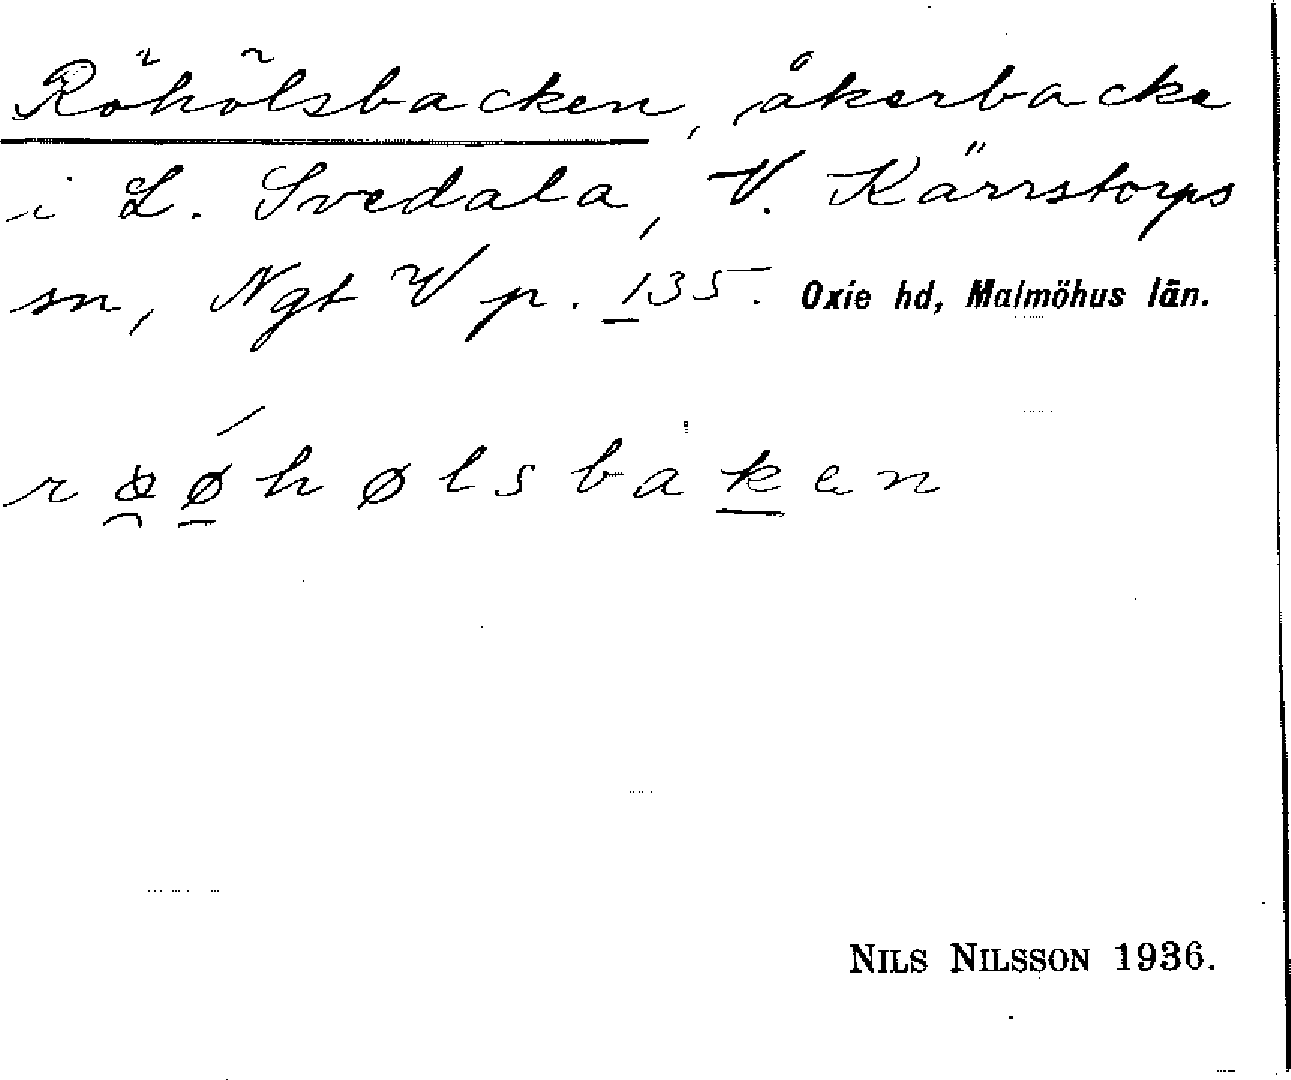 Röhölsbacken, åkerbacke
i L. Svedala, V. Kärrstorps
sn, Ngt V p. 135. Oxie hd, Malmöhus län.
röǿhølsbàken
NILS NILSSON 1936.